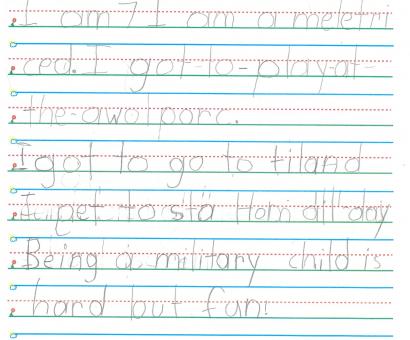 I am 7 I am a meletri
ced. I got-to-play-at-
the-awolporc.
I got to go to tiland
I get to sta Hom all day
Being a military child is
hard but fun!